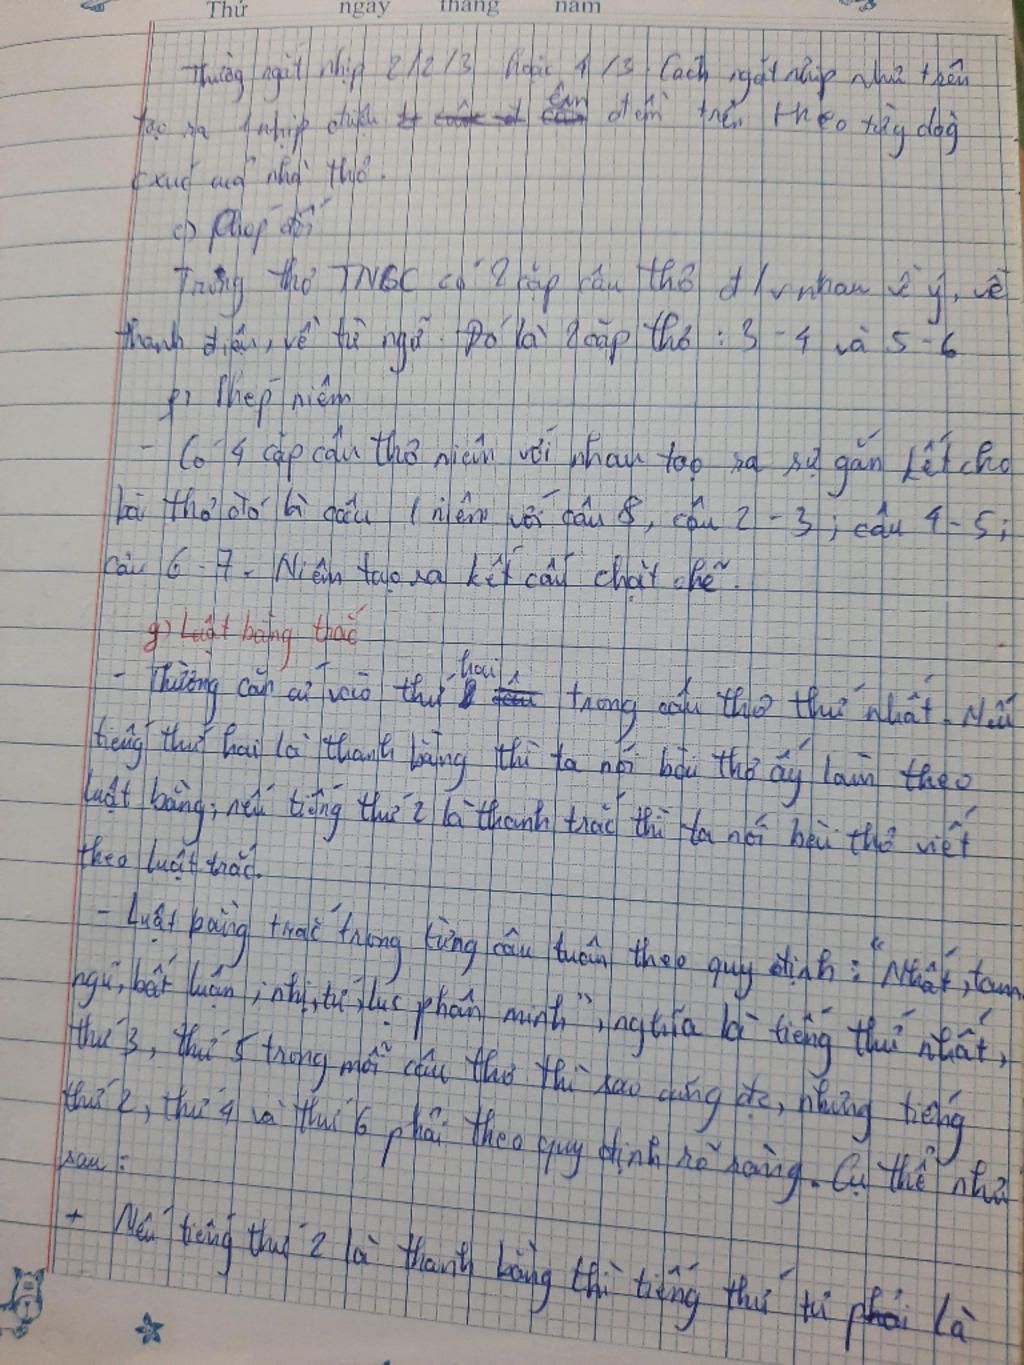 Thứ ngày tháng năm
Thường ngắt nhịp 2/2/3 hoặc 4/3. Cách ngắt nhịp như trên
tạo ra 1 nhịp điệu êm đềm trên theo từng dòng
cxúc của nhà thơ.
c) Phép đối
Trong thơ TNBC có 2 cặp câu thơ đ/v nhau về ý, về
thanh điệu, về từ ngữ. Đó là 2 cặp thơ: 3-4 và 5-6
f) Phép niêm
- Có 4 cặp câu thơ niêm với nhau tạo ra sự gắn kết cho
bài thơ đó là câu 1 niêm với câu 8, câu 2-3; câu 4-5;
câu 6-7. Niêm tạo ra kết cấu chặt chẽ.
g) Luật bằng trắc
- Thường căn cứ vào thứ hai trong câu thơ thứ nhất. Nếu
tiếng thứ hai là thanh bằng thì ta nói bài thơ ấy làm theo
luật bằng; nếu tiếng thứ 2 là thanh trắc thì ta nói bài thơ viết
theo luật trắc.
- Luật bằng trắc trong từng câu tuân theo quy định: "Nhất, tam,
ngũ, bất luận, nhị, tứ, lục phân minh", nghĩa là tiếng thứ nhất,
thứ 3, thứ 5 trong mỗi câu thơ thì sao cũng đc, nhưng tiếng
thứ 2, thứ 4 và thứ 6 phải theo quy định rõ ràng. Cụ thể như
sau:
+ Nếu tiếng thứ 2 là thanh bằng thì tiếng thứ tư phải là